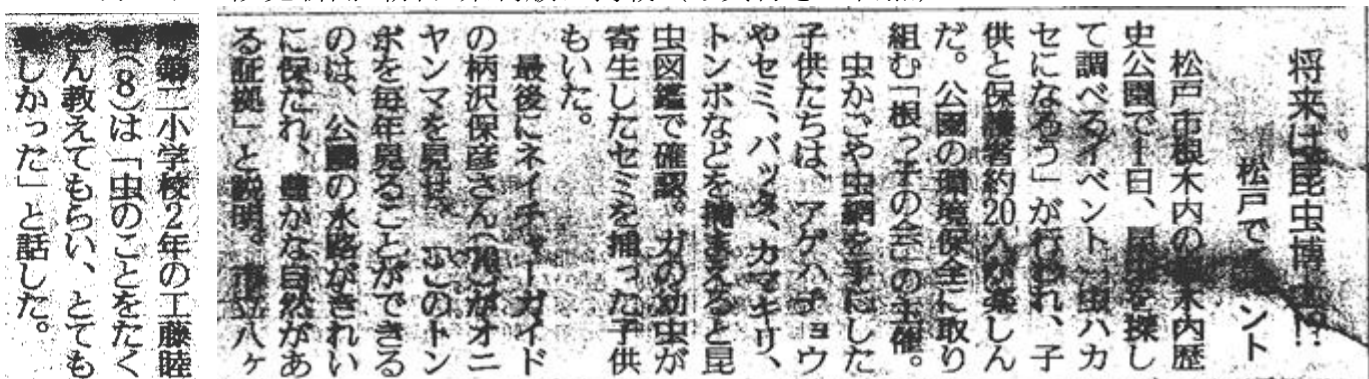 将来は昆虫博士!?
松戸でイベント
松戸市根木内の根木内歴
史公園で1日、昆虫を探し
て調べるイベント「虫ハカ
セになろう」が行われ、子
供と保護者約20人が楽しん
だ。公園の環境保全に取り
組む「根っ子の会」の主催。
虫かごや虫網を手にした
子供たちは、アゲハチョウ
やセミ、バッタ、カマキリ、
トンボなどを捕まえると昆
虫図鑑で確認。ガの幼虫が
寄生したセミを捕った子供
もいた。
最後にネイチャーガイド
の柄沢保彦さんがオニ
ヤンマを見せ、「このトン
ボを毎年見ることができる
のは、公園の水路がきれい
に保たれ、豊かな自然があ
る証拠」と説明。市立八ヶ
第二小学校2年の工藤睦
(8)は「虫のことをたく
さん教えてもらい、とても
楽しかった」と話した。